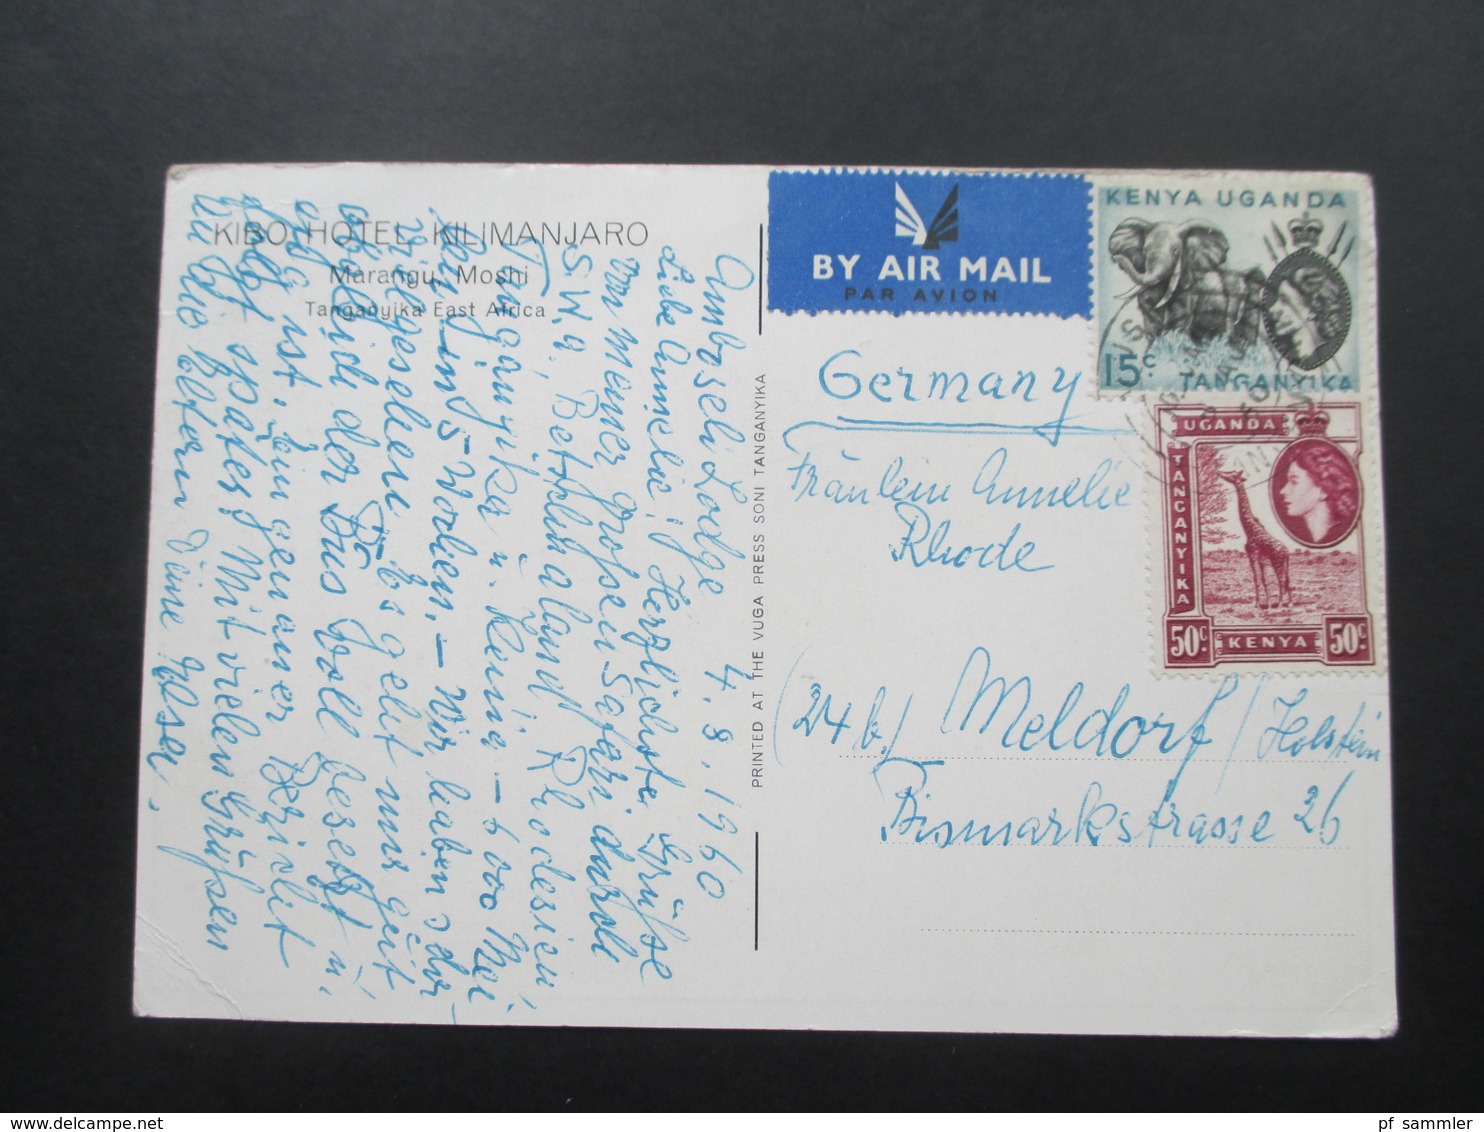 KIBO HOTEL KILIMANJARO
Marangu, Moshi
Tanganyika East Africa
Lodge 4.8.1960
Liebe Annelie, Herzlichste Grüsse
von meiner grossen Safari durch
S.W.A. Betschuanaland, Rhodesien,
Tanganyika u. Kenia – 6000 Mei
len in 5 Wochen. – Wir haben sehr
viel gesehen. Es geht uns gut
obgleich der Bus voll besetzt u.
eng ist. Ein genauer Bericht
folgt später. Mit vielen Grüssen
an die Eltern Deine Elsa.
PRINTED AT THE VUGA PRESS SONI TANGANYIKA
BY AIR MAIL
PAR AVION
KENYA UGANDA
15c TANGANYIKA
UGANDA
TANGANYIKA
50c KENYA 50c
Germany
Fräulein Annelie
Rhode
(24b) Meldorf / Holstein
Bismarkstrasse 26
pf_sammler